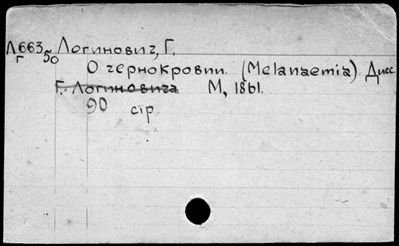 Л663 Логинович, Г.
г 50
О чернокровии. (Melanaemia). Дисс.
Г. Логиновича М, 1861.
90 стр.